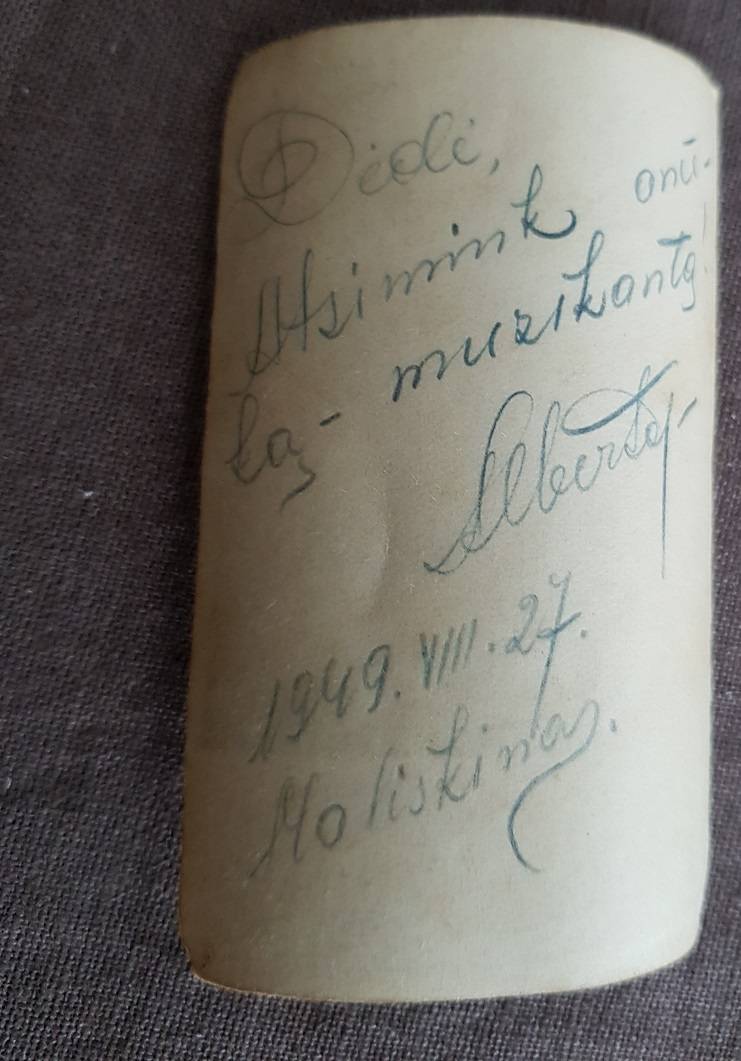 Dėdi,
Atsimink anū-
ką - muzikantą!
Albertą -
1949. VIII. 27.
Moliškinas.